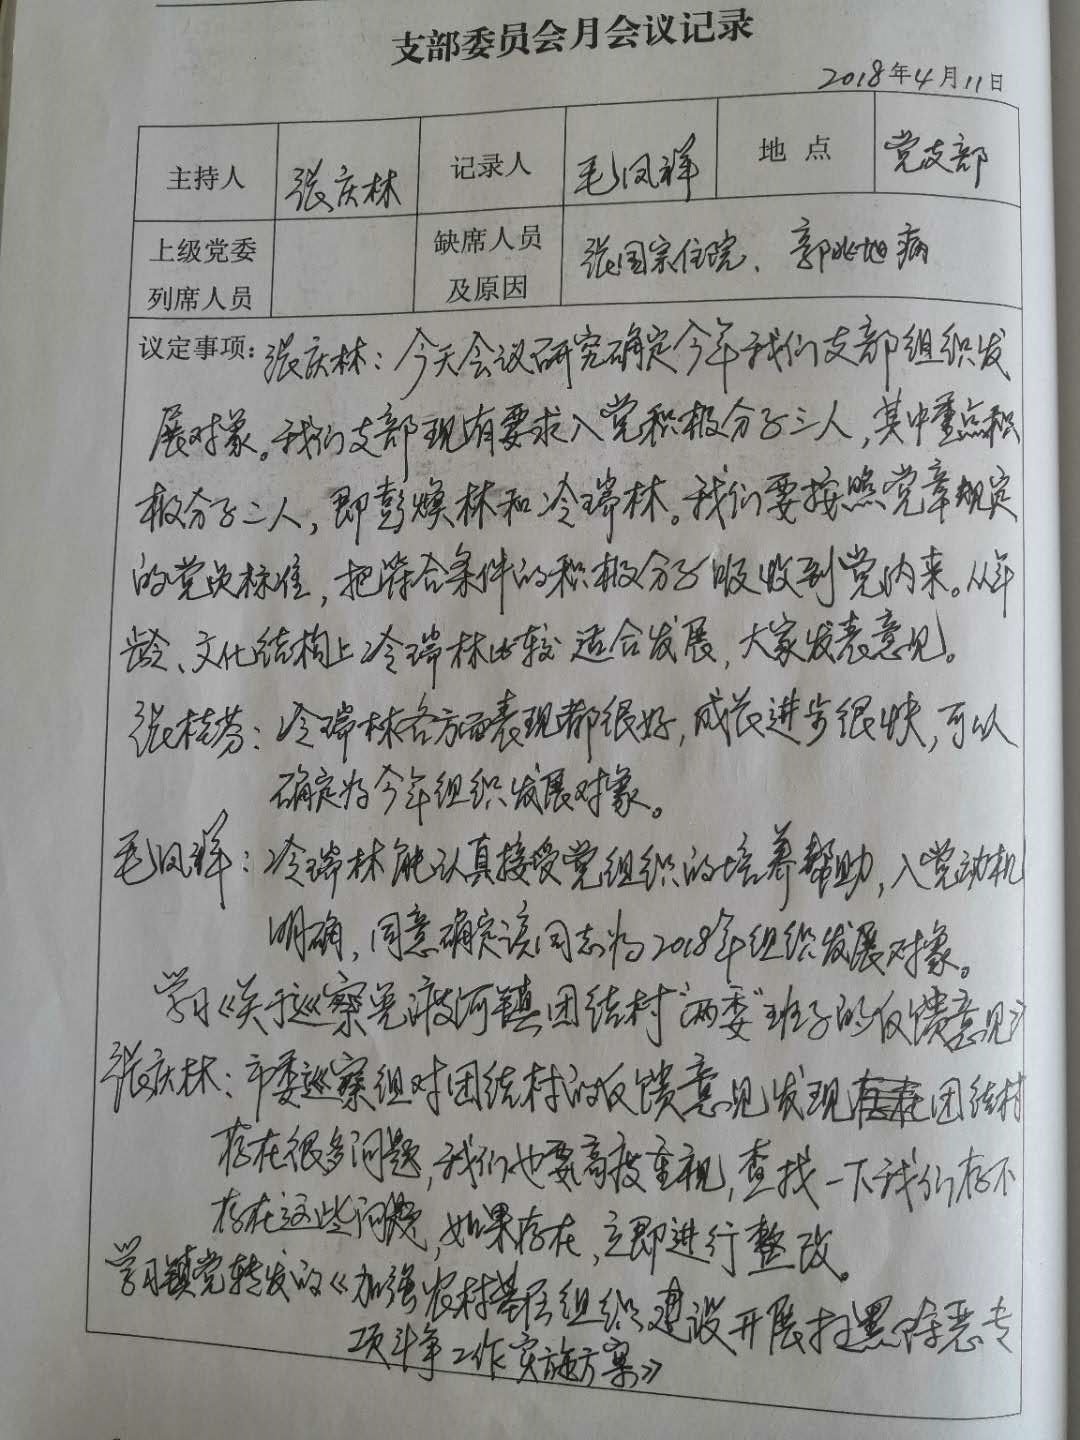 支部委员会月会议记录
2018年4月11日
主持人 张庆林 记录人 毛凤祥 地点 党支部
上级党委列席人员 缺席人员及原因 张国宗住院、郭兆旭病
议定事项:张庆林:今天会议研究确定今年我们支部组织发
展对象。我们支部现有要求入党积极分子三人,其中重点积
极分子二人,即彭焕林和冷瑞林。我们要按照党章规定
的党员标准,把符合条件的积极分子吸收到党内来。从年
龄、文化结构上冷瑞林比较适合发展,大家发表意见。
张桂芬:冷瑞林各方面表现都很好,成长进步很快,可以
确定为今年组织发展对象。
毛凤祥:冷瑞林能认真接受党组织的培养帮助,入党动机
明确,同意确定该同志为2018年组织发展对象。
学习《关于巡察 渡河镇团结村“两委”班子的反馈意见》
张庆林:市委巡察组对团结村的反馈意见发现团结村
存在很多问题,我们也要高度重视,查找一下我们存不
存在这些问题,如果存在,立即进行整改。
学习镇党转发的《加强农村基层组织建设开展扫黑除恶专
项斗争工作实施方案》